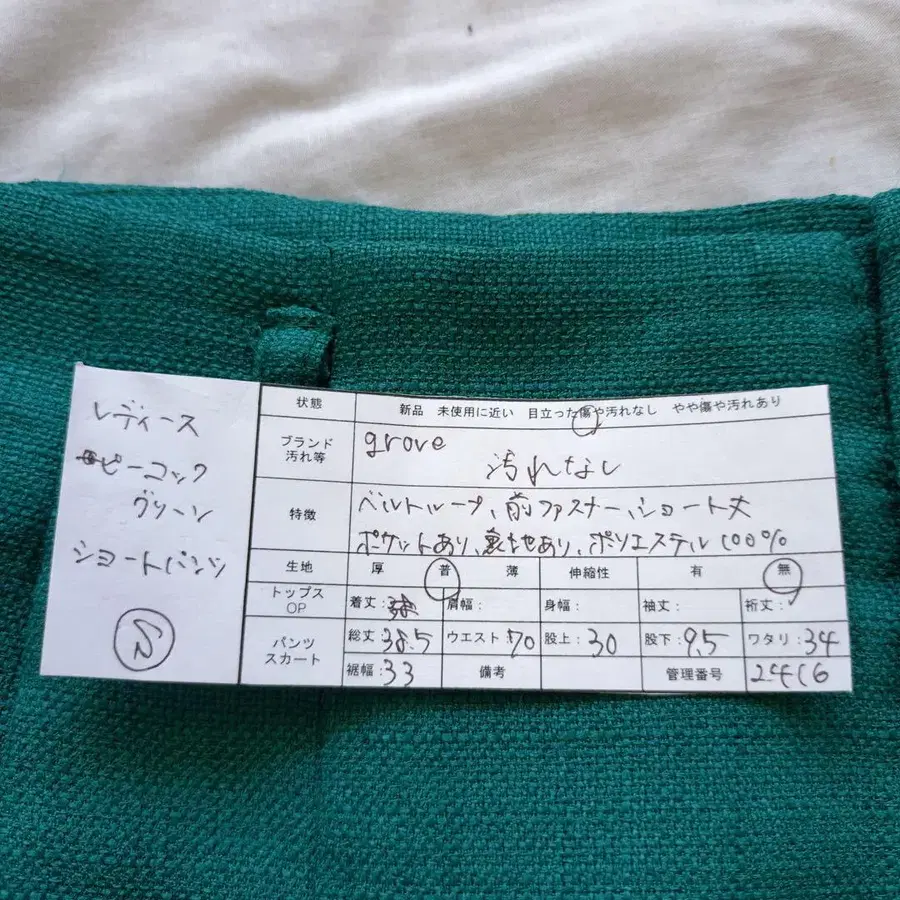 レディース
ピーコック
グリーン
ショートパンツ
状態 新品 未使用に近い 目立った傷や汚れなし やや傷や汚れあり
ブランド 汚れ等 grove
汚れなし
特徴 ベルトループ、前ファスナー、ショート丈
ポケットあり、裏地あり、ポリエステル100%
生地 厚 普 薄 伸縮性 有 無
トップス OP 着丈: 肩幅: 身幅: 袖丈: 裄丈:
パンツ スカート 総丈:38.5 ウエスト:70 股上:30 股下:9.5 ワタリ:34
裾幅:33 備考 管理番号 2416